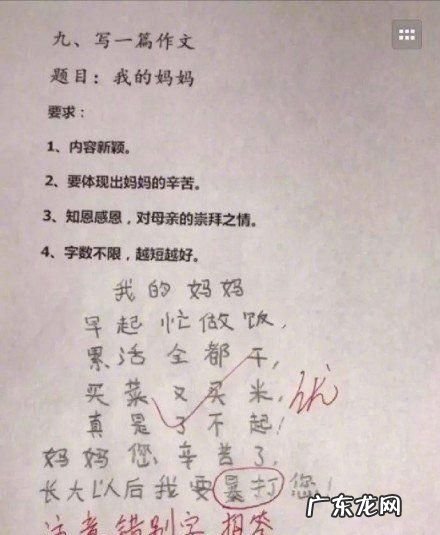 九、写一篇作文
题目：我的妈妈
要求：
1、内容新颖。
2、要体现出妈妈的辛苦。
3、知恩感恩，对母亲的崇拜之情。
4、字数不限，越短越好。
我的妈妈
早起忙做饭，
累活全都干，
买菜又买米，
优
真是了不起！
妈妈您辛苦了，
长大以人后我要暴打您！
广东龙网
注意错别字